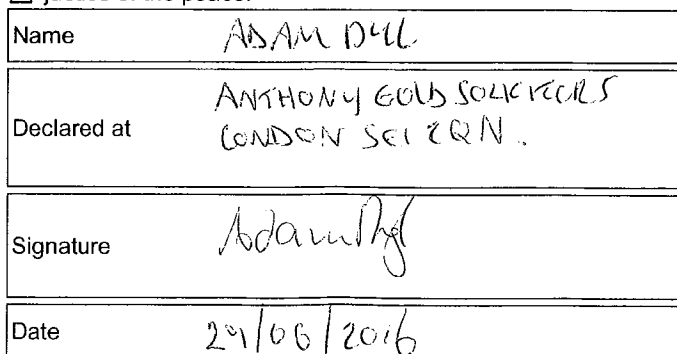 justice of the peace.
Name ADAM DYL
Declared at ANTHONY GOLD SOLICITORS
LONDON SE1 2QN.
Signature Adam Dyl
Date 29/06/2016